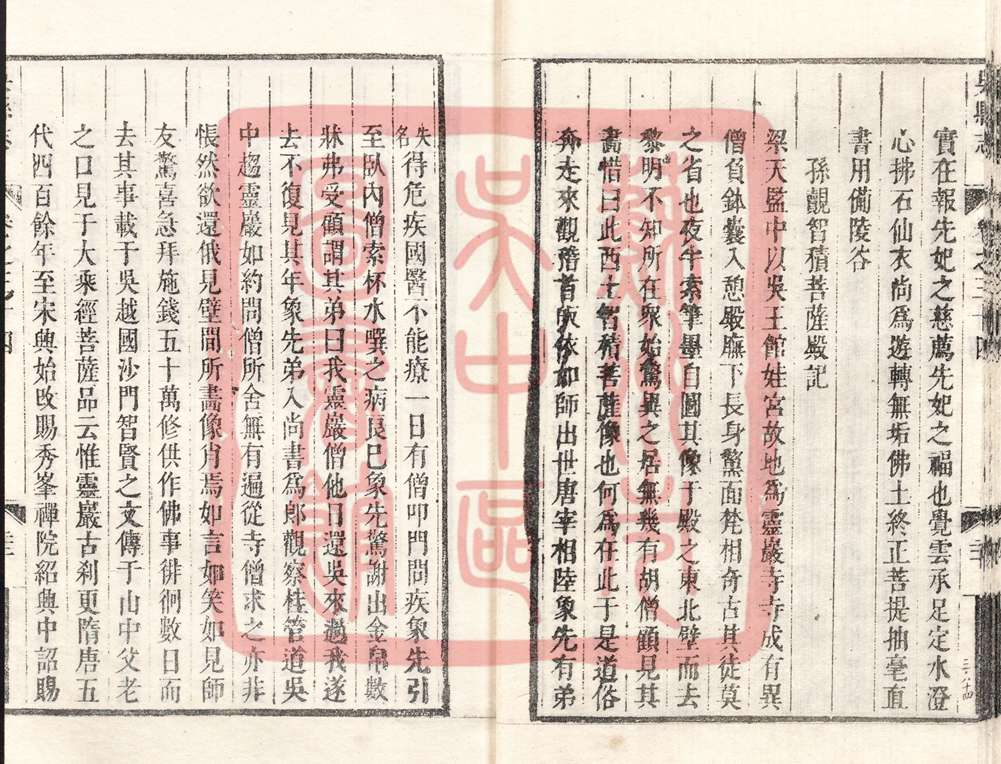 吳縣志
實在報先妃之慈薦先妃之福也覺雲承足定水澄
心拂石仙衣尚爲遊轉無垢佛土終正菩提抽毫直
書用備陵谷
孫覿智積菩薩殿記
梁天監中以吳王館娃宮故地爲靈巖寺寺成有異
僧負鉢囊入憩殿廡下長身黧面梵相奇古其徒莫
之省也夜半索筆墨自圖其像于殿之東北壁而去
黎明不知所在眾始驚異之居無幾有胡僧顧見其
畵惜曰此西土智積菩薩像也何爲在此于是道俗
奔走來觀稽首皈依如師出世唐宰相陸象先有弟
失名得危疾國醫不能療一日有僧叩門問疾象先引
至臥內僧索杯水噀之病良巳象先驚謝出金帛數
牀弗受顧謂其弟曰我靈巖僧他日還吳來過我遂
去不復見其年象先弟入尚書爲郎觀察桂管道吳
中趨靈巖如約問僧所舍無有遍從寺僧求之亦非
悵然欲還俄見壁間所畵像肖焉如言如笑如見師
友驚喜急拜施錢五十萬修供作佛事徘徊數日而
去其事載于吳越國沙門智賢之文傳于山中父老
之口見于大乘經菩薩品云惟靈巖古刹更隋唐五
代四百餘年至宋興始改賜秀峯禪院紹興中詔賜